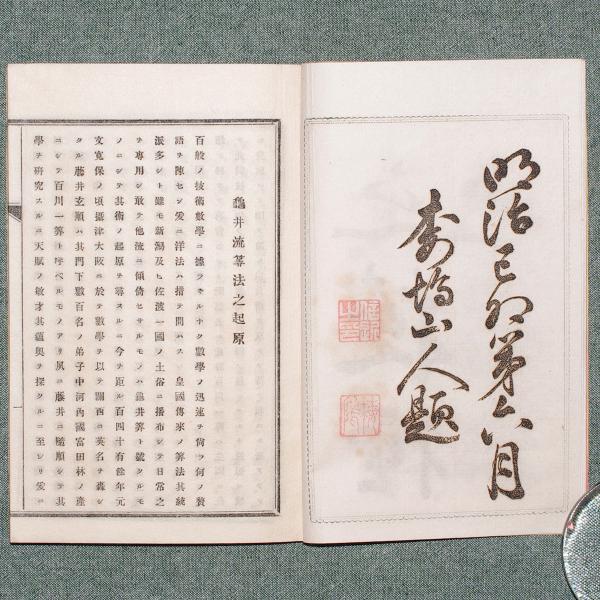 明治己卯第六月
李塢山人題
龜井流筭法之起原
百般ノ技術數學ニ據ラサルナク數學ノ迅速ヲ尙フ何ノ贅
語ヲ陳セン爰ニ洋法ハ措テ問ハス 皇國傳來ノ筭法其統
派多シト雖モ新潟及ヒ佐渡一國ノ土俗ニ播布シテ日常之
ヲ専用シ敢テ他流ニ傾倚セサルモノハ龜井筭ト號タルモ
ノニシテ其術ノ起原ヲ尋スルニ今ヲ距ル百四十有餘年元
文寛保ノ頃攝津大阪ニ於テ數學ヲ以テ關西ニ英名ヲ轟シ
タル藤井玄順ハ其門下數百名ノ弟子中河內國富田林ノ產
ニシテ百川一筭ト呼ベルモノアリ夙ニ藤井ニ隨順シテ其
學ヲ硏究スルニ天賦ノ敏才其蘊奧ヲ探クルニ至レリ爰ニ